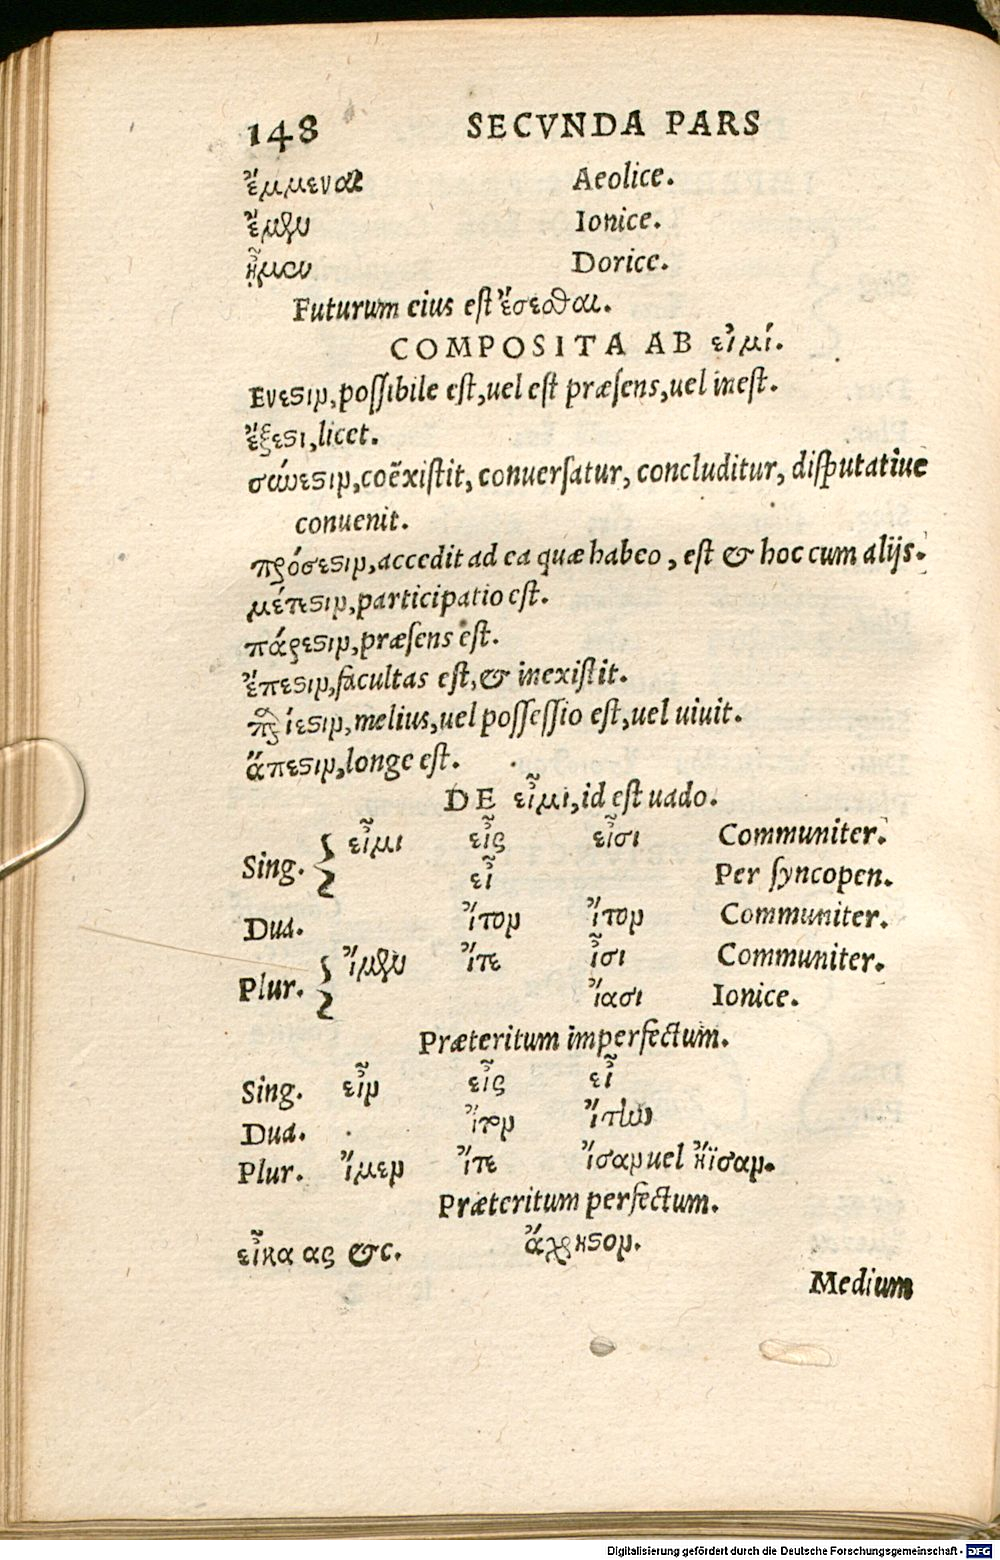 148 SECVNDA PARS
ἔμμεναι Aeolice.
ἔμεν Ionice.
ἦμεν Dorice.
Futurum eius est ἔσεσθαι.
COMPOSITA AB εἰμί.
Ενεστιν, possibile est, uel est præsens, uel inest.
ἔξεστι, licet.
σύνεστιν, coẽxistit, conuersatur, concluditur, disputatiue
conuenit.
πρόσεστιν, accedit ad ea quæ habeo, est & hoc cum alijs.
μέτεστιν, participatio est.
πάρεστιν, præsens est.
ἔπεστιν, facultas est, & inexistit.
περίεστιν, melius, uel possessio est, uel uiuit.
ἄπεστιν, longe est.
DE εἶμι, id est uado.
Sing. { εἶμι εἶς εἶσι Communiter.
εἶ Per syncopen.
Dua. ἴτον ἴτον Communiter.
Plur. { ἴμεν ἴτε ἶσι Communiter.
ἴασι Ionice.
Præteritum imperfectum.
Sing. εἶν εἶς εἶ
Dua. ἴτον ἴτην
Plur. ἴμεν ἴτε ἴσαν uel ἤϊσαν.
Præteritum perfectum.
εἶκα ας &c. ἄχρηστον.
Medium
Digitalisierung gefördert durch die Deutsche Forschungsgemeinschaft - DFG